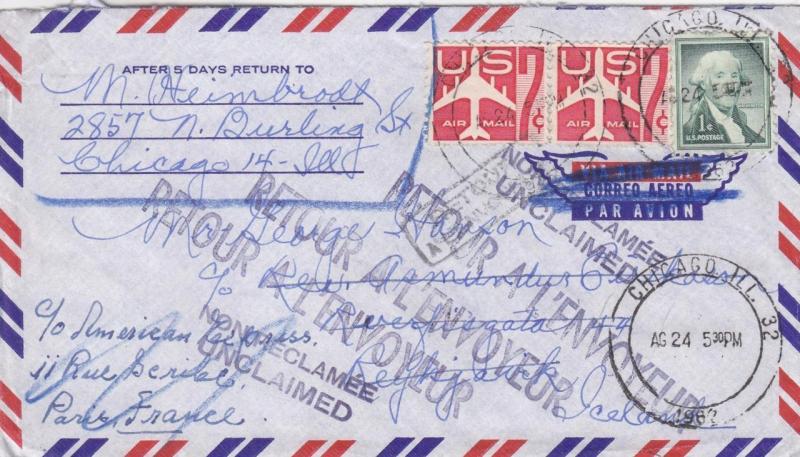 AFTER 5 DAYS RETURN TO
M. Heimbrodt
2857 N. Burling St
Chicago 14 - Ill
US 7c
AIR MAIL
US 7c
AIR MAIL
1¢
U.S. POSTAGE
CHICAGO, ILL.
AG 24 5 30 PM
VIA AIR MAIL
CORREO AEREO
PAR AVION
NON RÉCLAMÉE
UNCLAIMED
RETOUR A L'ENVOYEUR
RETOUR A L'ENVOYEUR
RETOUR A L'ENVOYEUR
Mr George Hanson
c/o
Reykjavik
Iceland
c/o American Express.
11 Rue Scribe.
Paris France.
NON RÉCLAMÉE
UNCLAIMED
CHICAGO, ILL. 32
AG 24 5 30 PM
1962